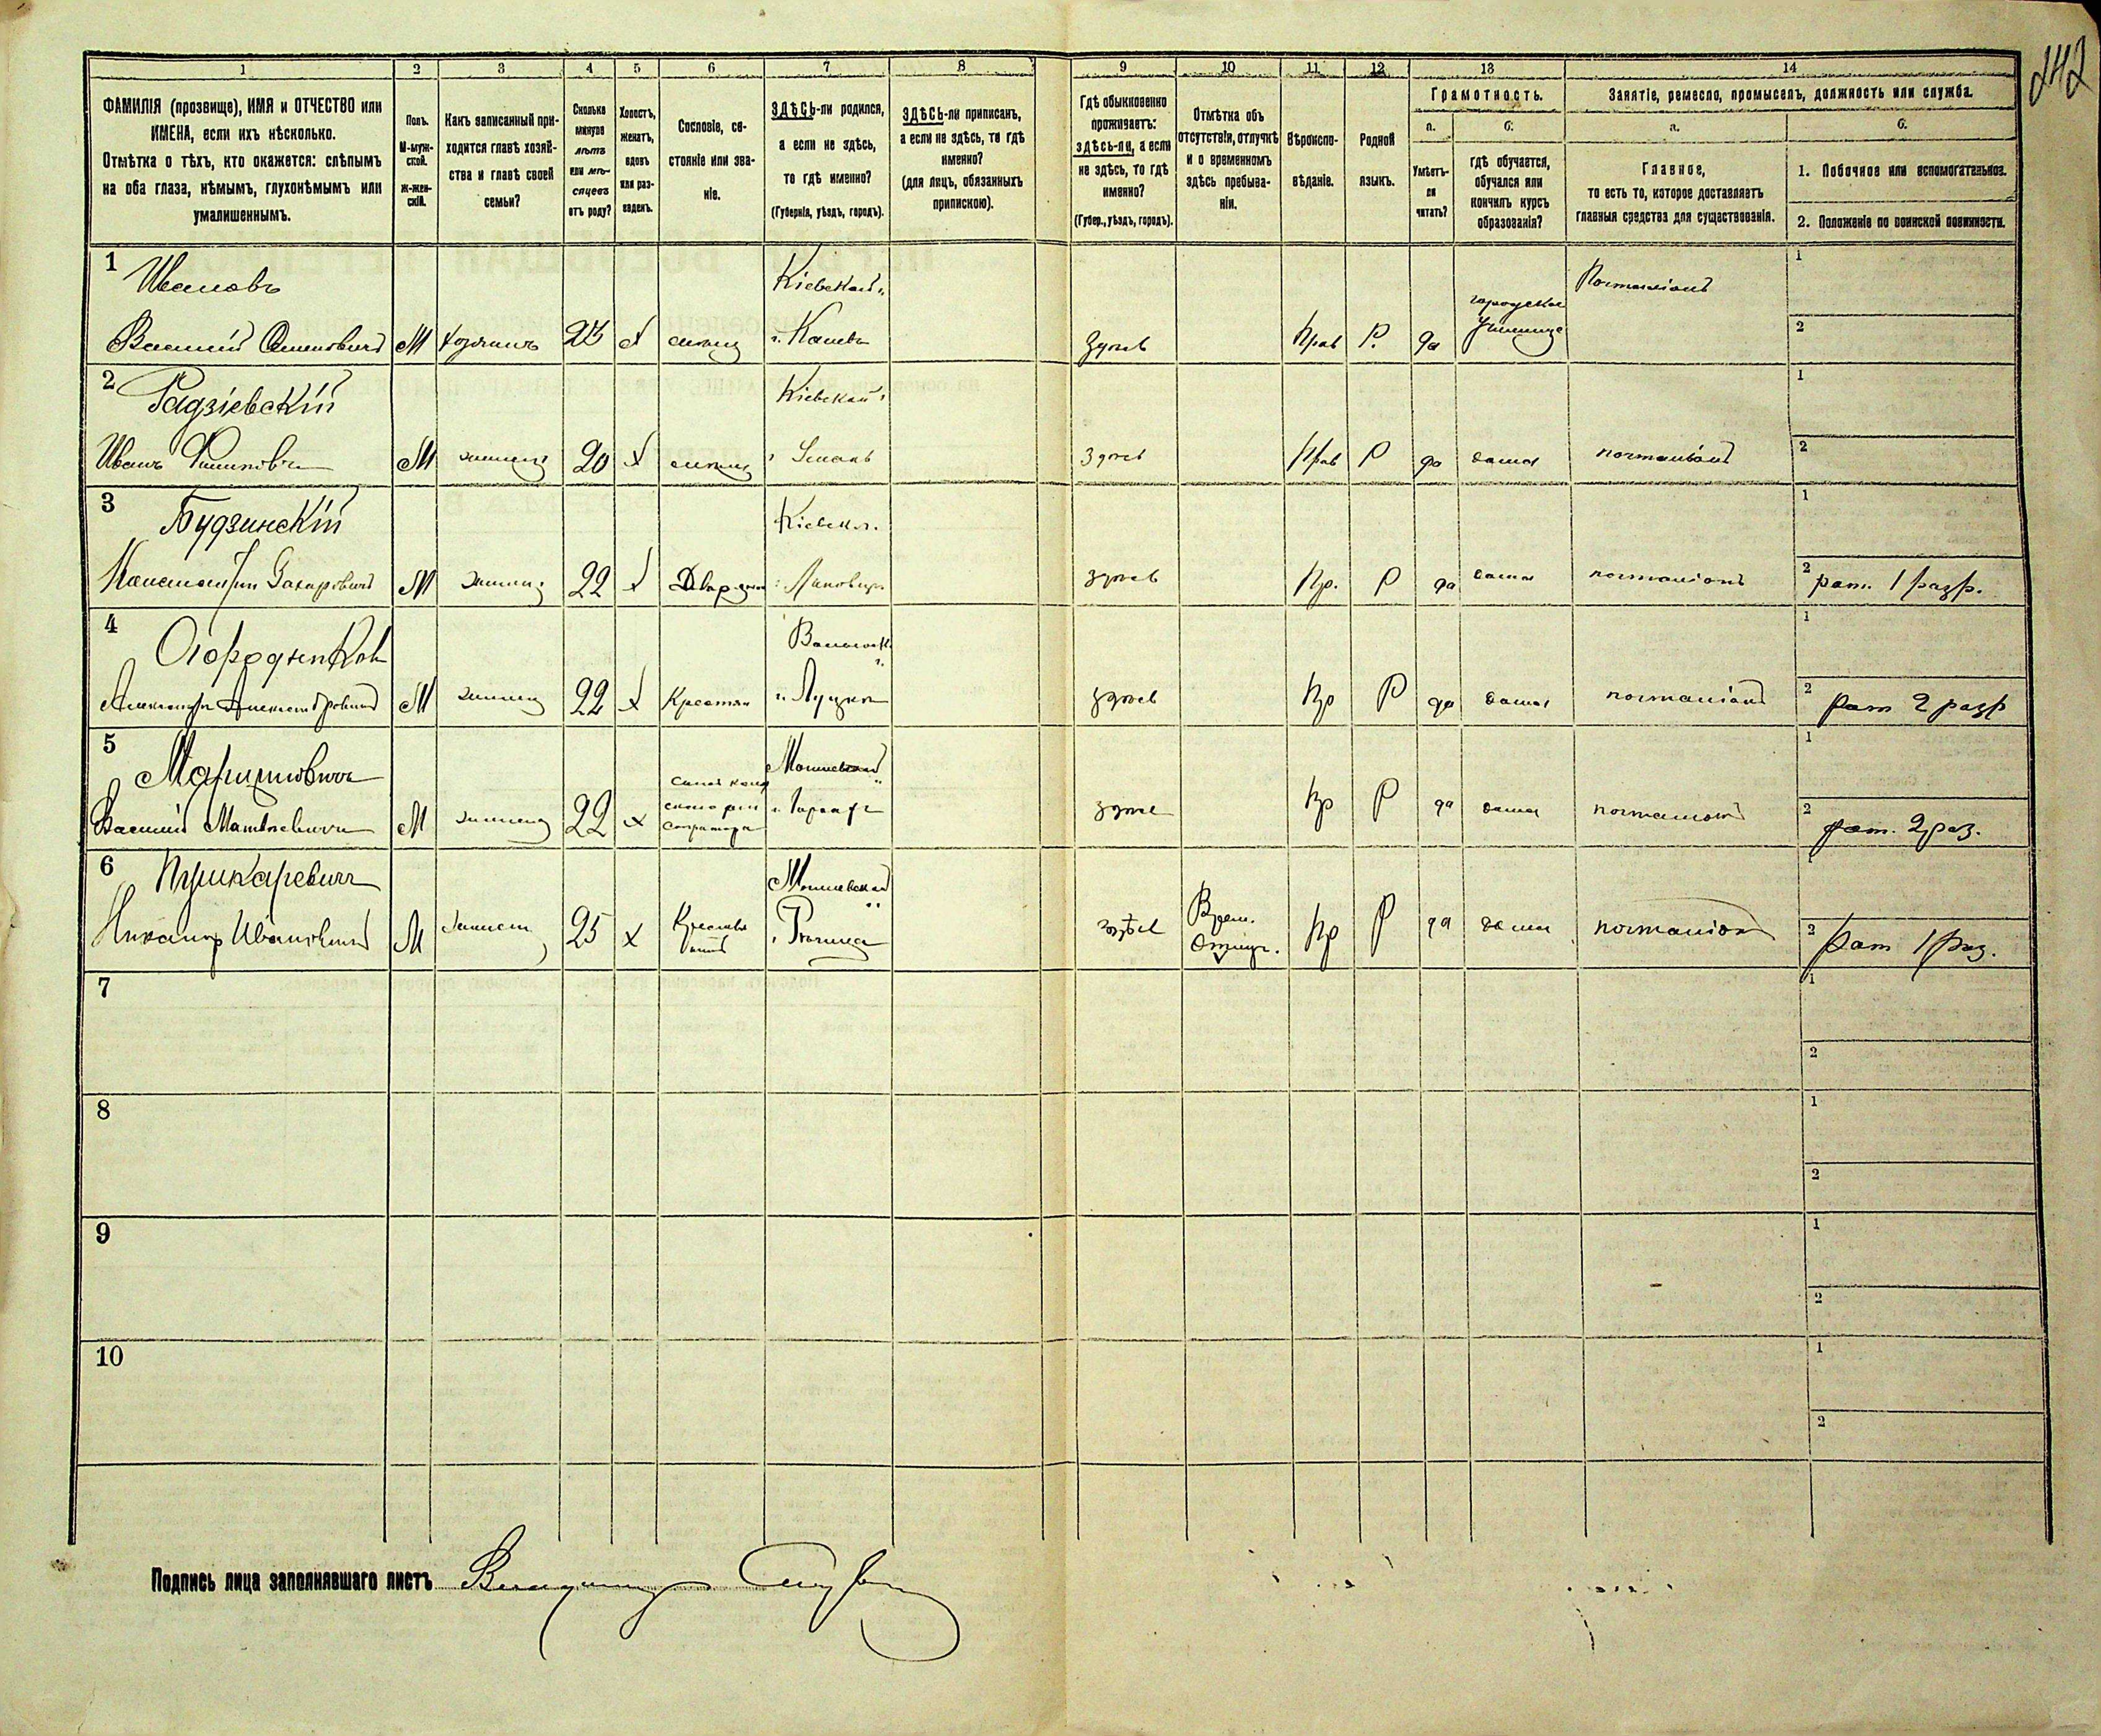 242
1 2 3 4 5 6 7 8 9 10 11 12 13 14
ФАМИЛІЯ (прозвище), ИМЯ и ОТЧЕСТВО или
ИМЕНА, если ихъ нѣсколько.
Отмѣтка о тѣхъ, кто окажется: слѣпымъ
на оба глаза, нѣмымъ, глухонѣмымъ или
умалишеннымъ.
Полъ.
М-муж-
ской.
Ж-жен-
скій.
Какъ записанный при-
ходится главѣ хозяй-
ства и главѣ своей
семьи?
Сколько
минуло
лѣтъ
или мѣ-
сяцевъ
отъ роду?
Холостъ,
женатъ,
вдовъ
или раз-
веденъ.
Сословіе, со-
стояніе или зва-
ніе.
ЗДѢСЬ-ли родился,
а если не здѣсь,
то гдѣ именно?
(Губернія, уѣздъ, городъ).
ЗДѢСЬ-ли приписанъ,
а если не здѣсь, то гдѣ
именно?
(для лицъ, обязанныхъ
припискою).
Гдѣ обыкновенно
проживаетъ:
здѣсь-ли, а если
не здѣсь, то гдѣ
именно?
(Губер., уѣздъ, городъ).
Отмѣтка объ
отсутствіи, отлучкѣ
и о временномъ
здѣсь пребыва-
ніи.
Вѣроиспо-
вѣданіе.
Родной
языкъ.
Грамотность.
а.
Умѣетъ-
ли
читать?
б.
гдѣ обучается,
обучался или
кончилъ курсъ
образованія?
Занятіе, ремесло, промыселъ, должность или служба.
а.
Главное,
то есть то, которое доставляетъ
главныя средства для существованія.
б.
1. Побочное или вспомогательное.
2. Положеніе по воинской повинности.
1 Ивановъ Кіевской Почталіонъ 1
городское
Василій М хозяинъ 23 х г. Каневъ Здѣсь Прав Р. да училище 2
2 Радзіевскій Кіевской 1
Иванъ М 20 х г. Умань Здѣсь Прав Р да дома почталіонъ 2
3 Будзинскій Кіевск. 1
Константин Захаровичъ М 22 х Дворянин г. Липовецъ здѣсь Пр. Р да дома почталіонъ 2 рат. 1 разр.
4 Волынск. 1
Александръ Александровичъ М 22 х Крестян г. Луцкъ здѣсь Пр Р да дома почталіонъ 2 рат 2 разр
5 1
Василій Матвѣевичъ М 22 х здѣсь Пр Р да дома почталіонъ 2 рат. 2 раз.
6 Пушкаревичъ 1
Никаноръ Ивановичъ М 25 х здѣсь Врем. Отлуч. Пр Р да дома почталіонъ 2 рат 1 раз.
7 1
2
8 1
2
9 1
2
10 1
2
Подпись лица заполнявшаго листъ Владиміръ